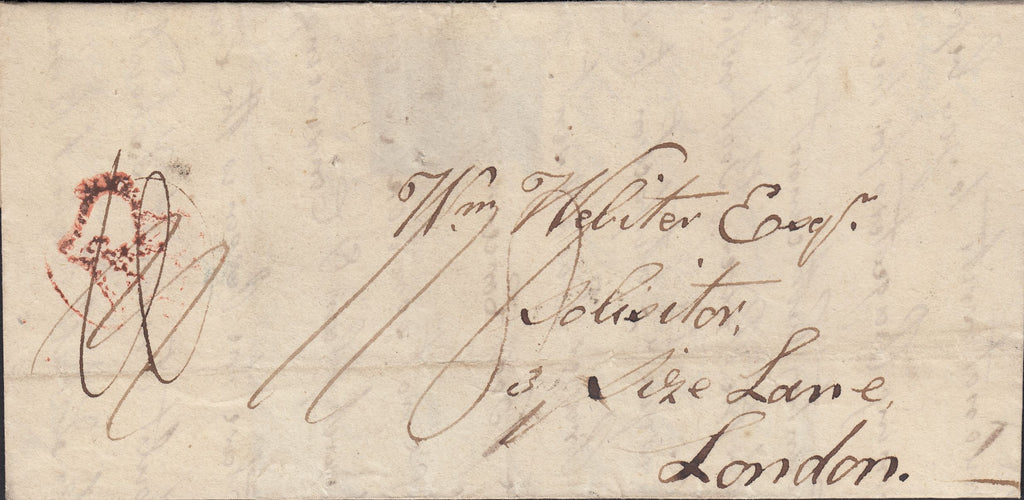 Wm Webster Esqr.
Solicitor,
3 Size Lane,
London.